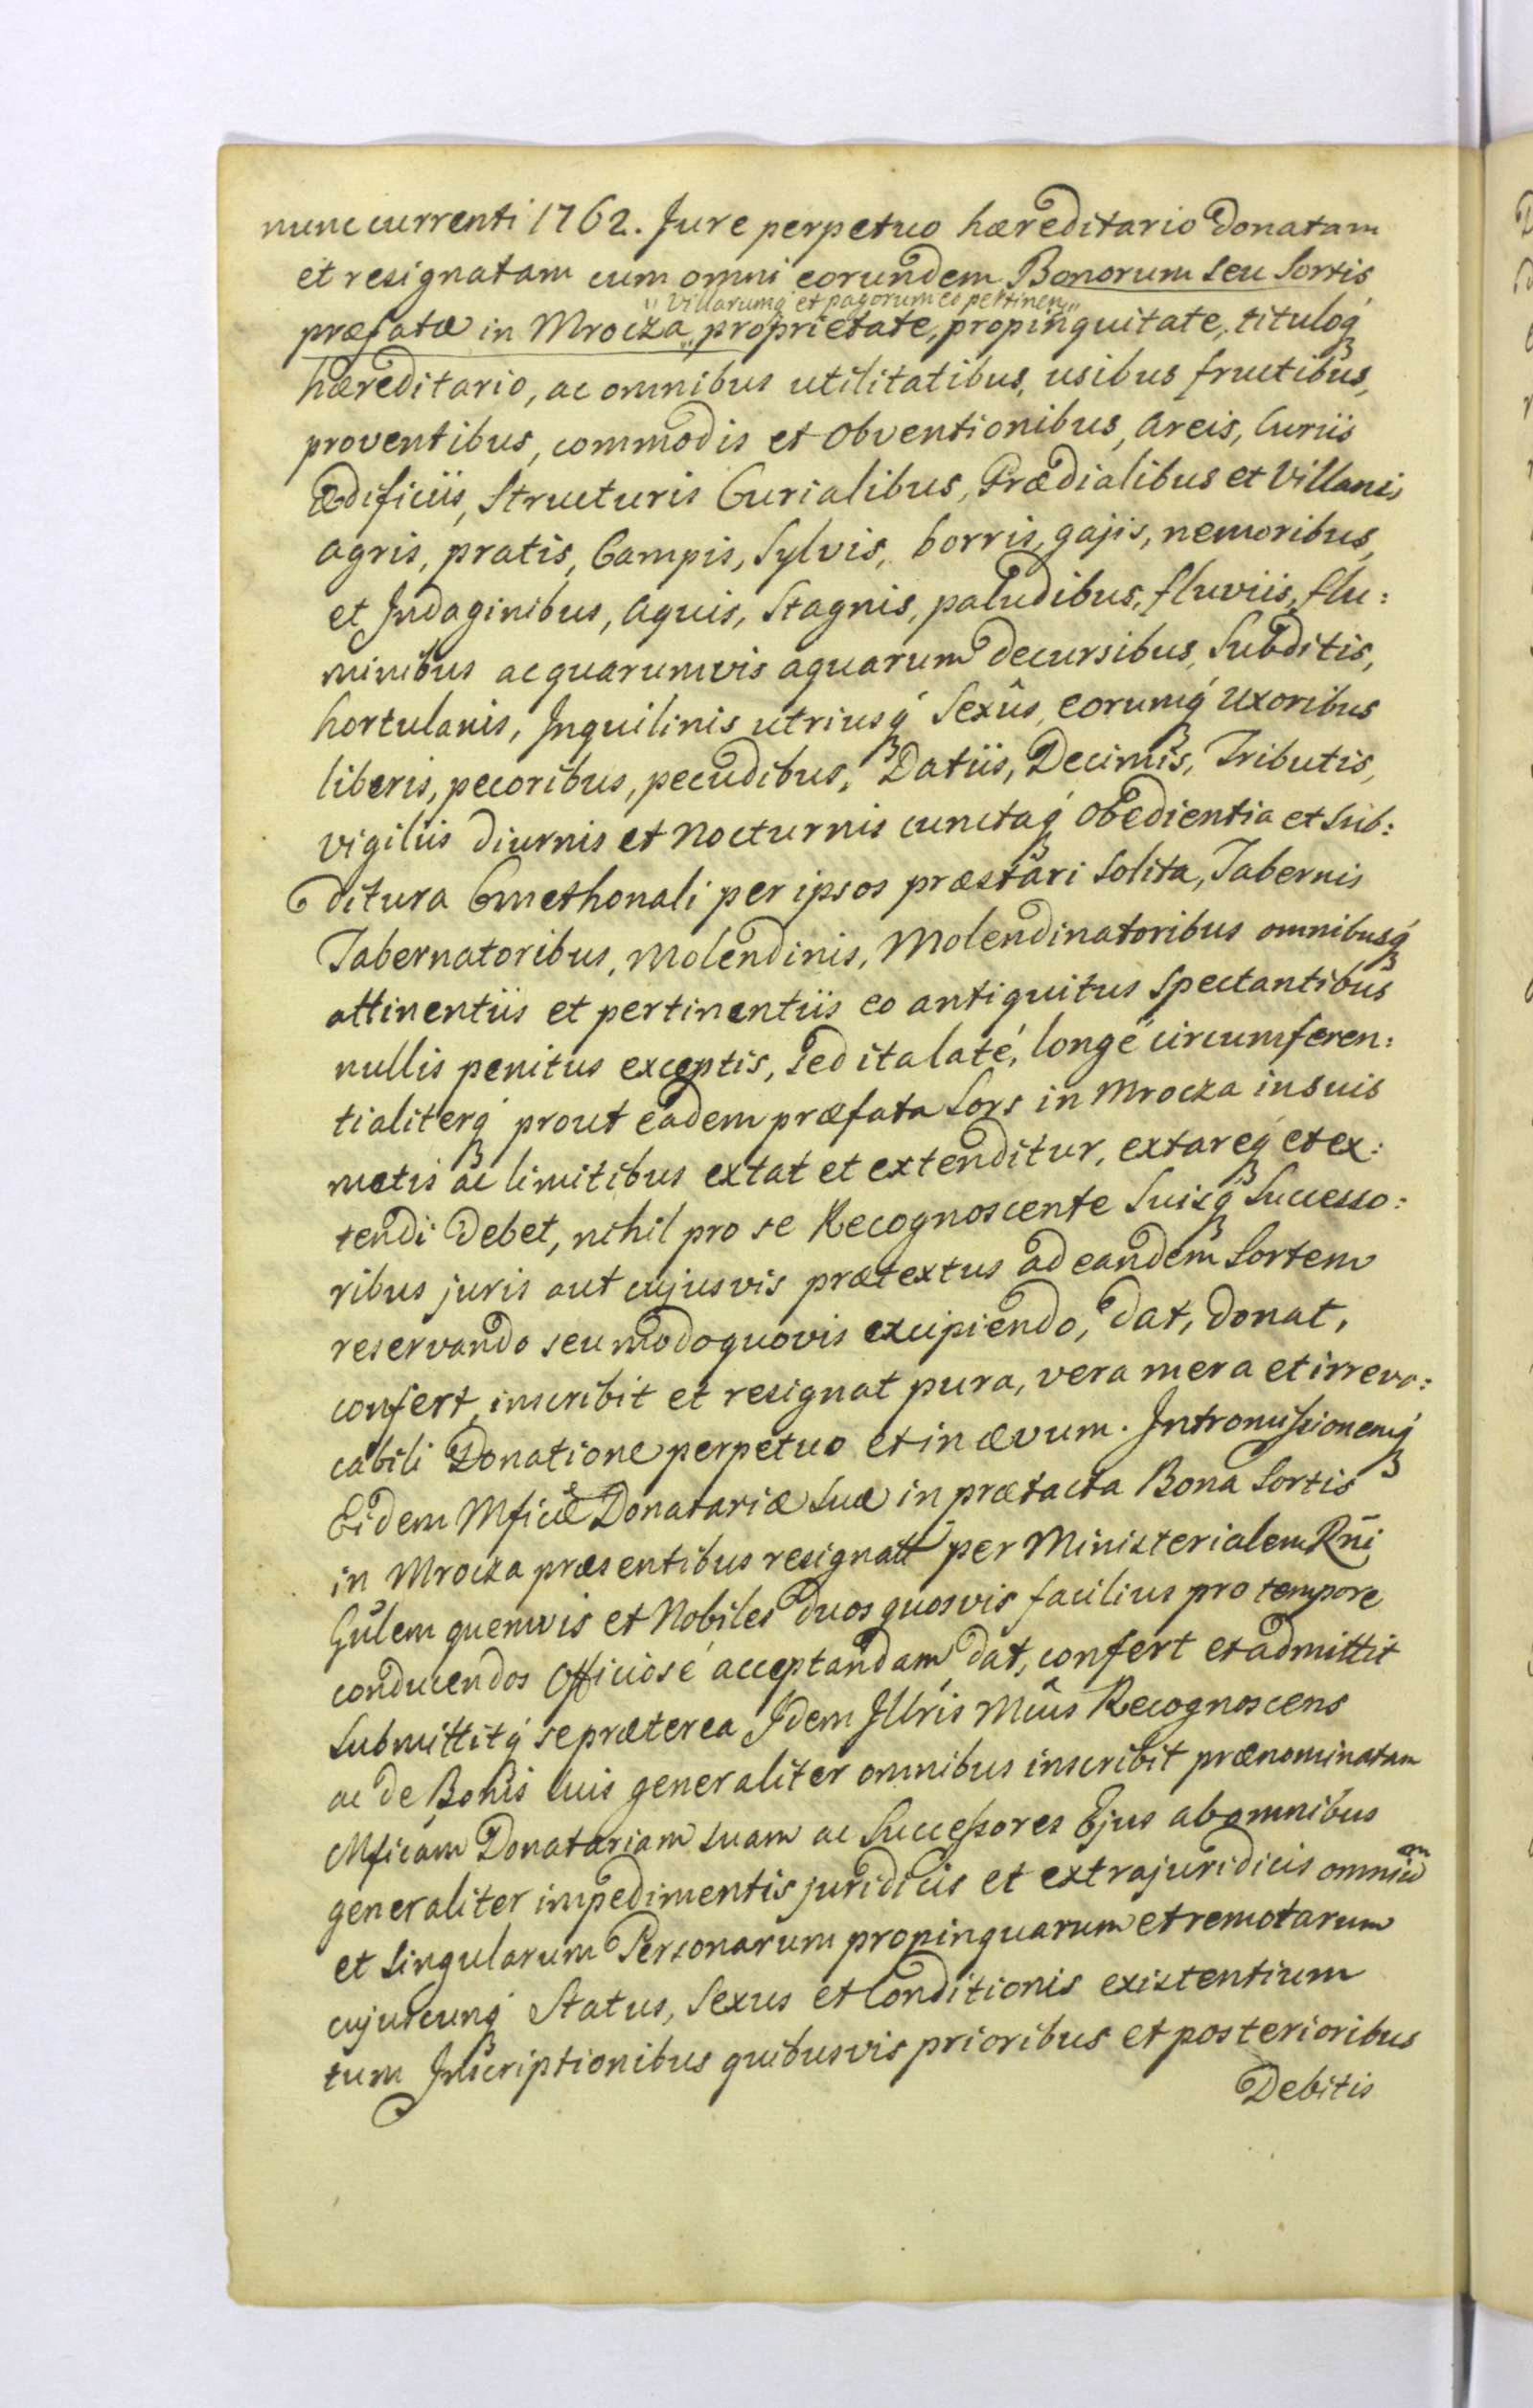 nunc currenti 1762. Jure perpetuo hæreditario Donatam
et resignatam cum omni eorundem Bonorum seu Sortis
„Villarumq́ et pagorum eo pertinen„
præfatæ in Mrocza„ proprietate, propinquitate, tituloq́
hæreditario, ac omnibus utilitatibus, usibus fructibus,
proventibus, commodis et obventionibus, areis, Curiis
Ædificiis, Structuris Curialibus, Prædialibus et Villanis
agris, pratis, Campis, Sylvis, borris, gajis, nemoribus,
et Indaginibus, aquis, Stagnis, paludibus, fluviis, flu:
minibus ac quarumvis aquarum decursibus, Subditis,
hortulanis, Inquilinis utriusq́ Sexûs, eorumq́ Uxoribus
liberis, pecoribus, pecudibus, Datiis, Decimis, Tributis,
vigiliis diurnis et Nocturnis cunctaq́ obedientia et Sub:
ditura Cmethonali per ipsos præstari Solita, Tabernis
Tabernatoribus, Molendinis, Molendinatoribus omnibusq́
attinentiis et pertinentiis eo antiquitus Spectantibus
nullis penitus exceptis, sed ita laté, longé circumferen:
tialiterq́ prout eadem præfata Sors in Mrocza in suis
metis ac limitibus extat et extenditur, extareq́ et ex:
tendi Debet, nihil pro se Recognoscente Suisq́ Successo:
ribus juris aut cujusvis prætextus ad eandem Sortem
reservando seu modo quovis excipiendo, dat, donat,
confert, inscribit et resignat pura, vera mera et irrevo:
cabili Donatione perpetuo et in ævum. Intromissionemq́
Eidem Mficæ Donatariæ Suæ in prætacta Bona Sortis
in Mrocza præsentibus resignatt per Ministerialem Rñi
Gũlem quemvis et Nobiles duos quosvis facilius pro tempore
conducendos Officiosé acceptandam dat, confert et admittit
Submittitq́ se præterea Idem Illris Mcus Recognoscens
ac de Bonis Suis generaliter omnibus inscribit prænominatam
Mficam Donatariam suam ac Successores Ejus ab omnibus
generaliter impedimentis juridicis et extrajuridicis omnium
et Singularum Personarum propinquarum et remotarum
cujuscunq́ Status, Sexus et Conditionis existentium
tum Inscriptionibus quibusvis prioribus et posterioribus
Debitis